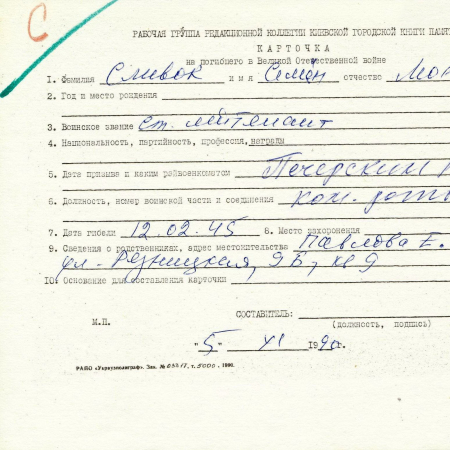 С
РАБОЧАЯ ГРУППА РЕДАКЦИОННОЙ КОЛЛЕГИИ КИЕВСКОЙ ГОРОДСКОЙ КНИГИ ПАМЯ
КАРТОЧКА
на погибшего в Великой Отечественной войне
1. Фамилия Сливок имя Семён отчество Мо
2. Год и место рождения
3. Воинское звание ст. лейтенант
4. Национальность, партийность, профессия, награды
5. Дата призыва и каким райвоенкоматом Печерским
6. Должность, номер воинской части и соединения ком. роты
7. Дата гибели 12.02.45 8. Место захоронения
9. Сведения о родственниках, адрес местожительства Павлова Е.
ул. Резницкая, 9Б, кв 9
10. Основание для составления карточки
СОСТАВИТЕЛЬ:
(должность, подпись)
М.П.
"5" XI 1990г.
РАПО «Укрвузполиграф». Зак. № 0331, т. 5000, 1990.